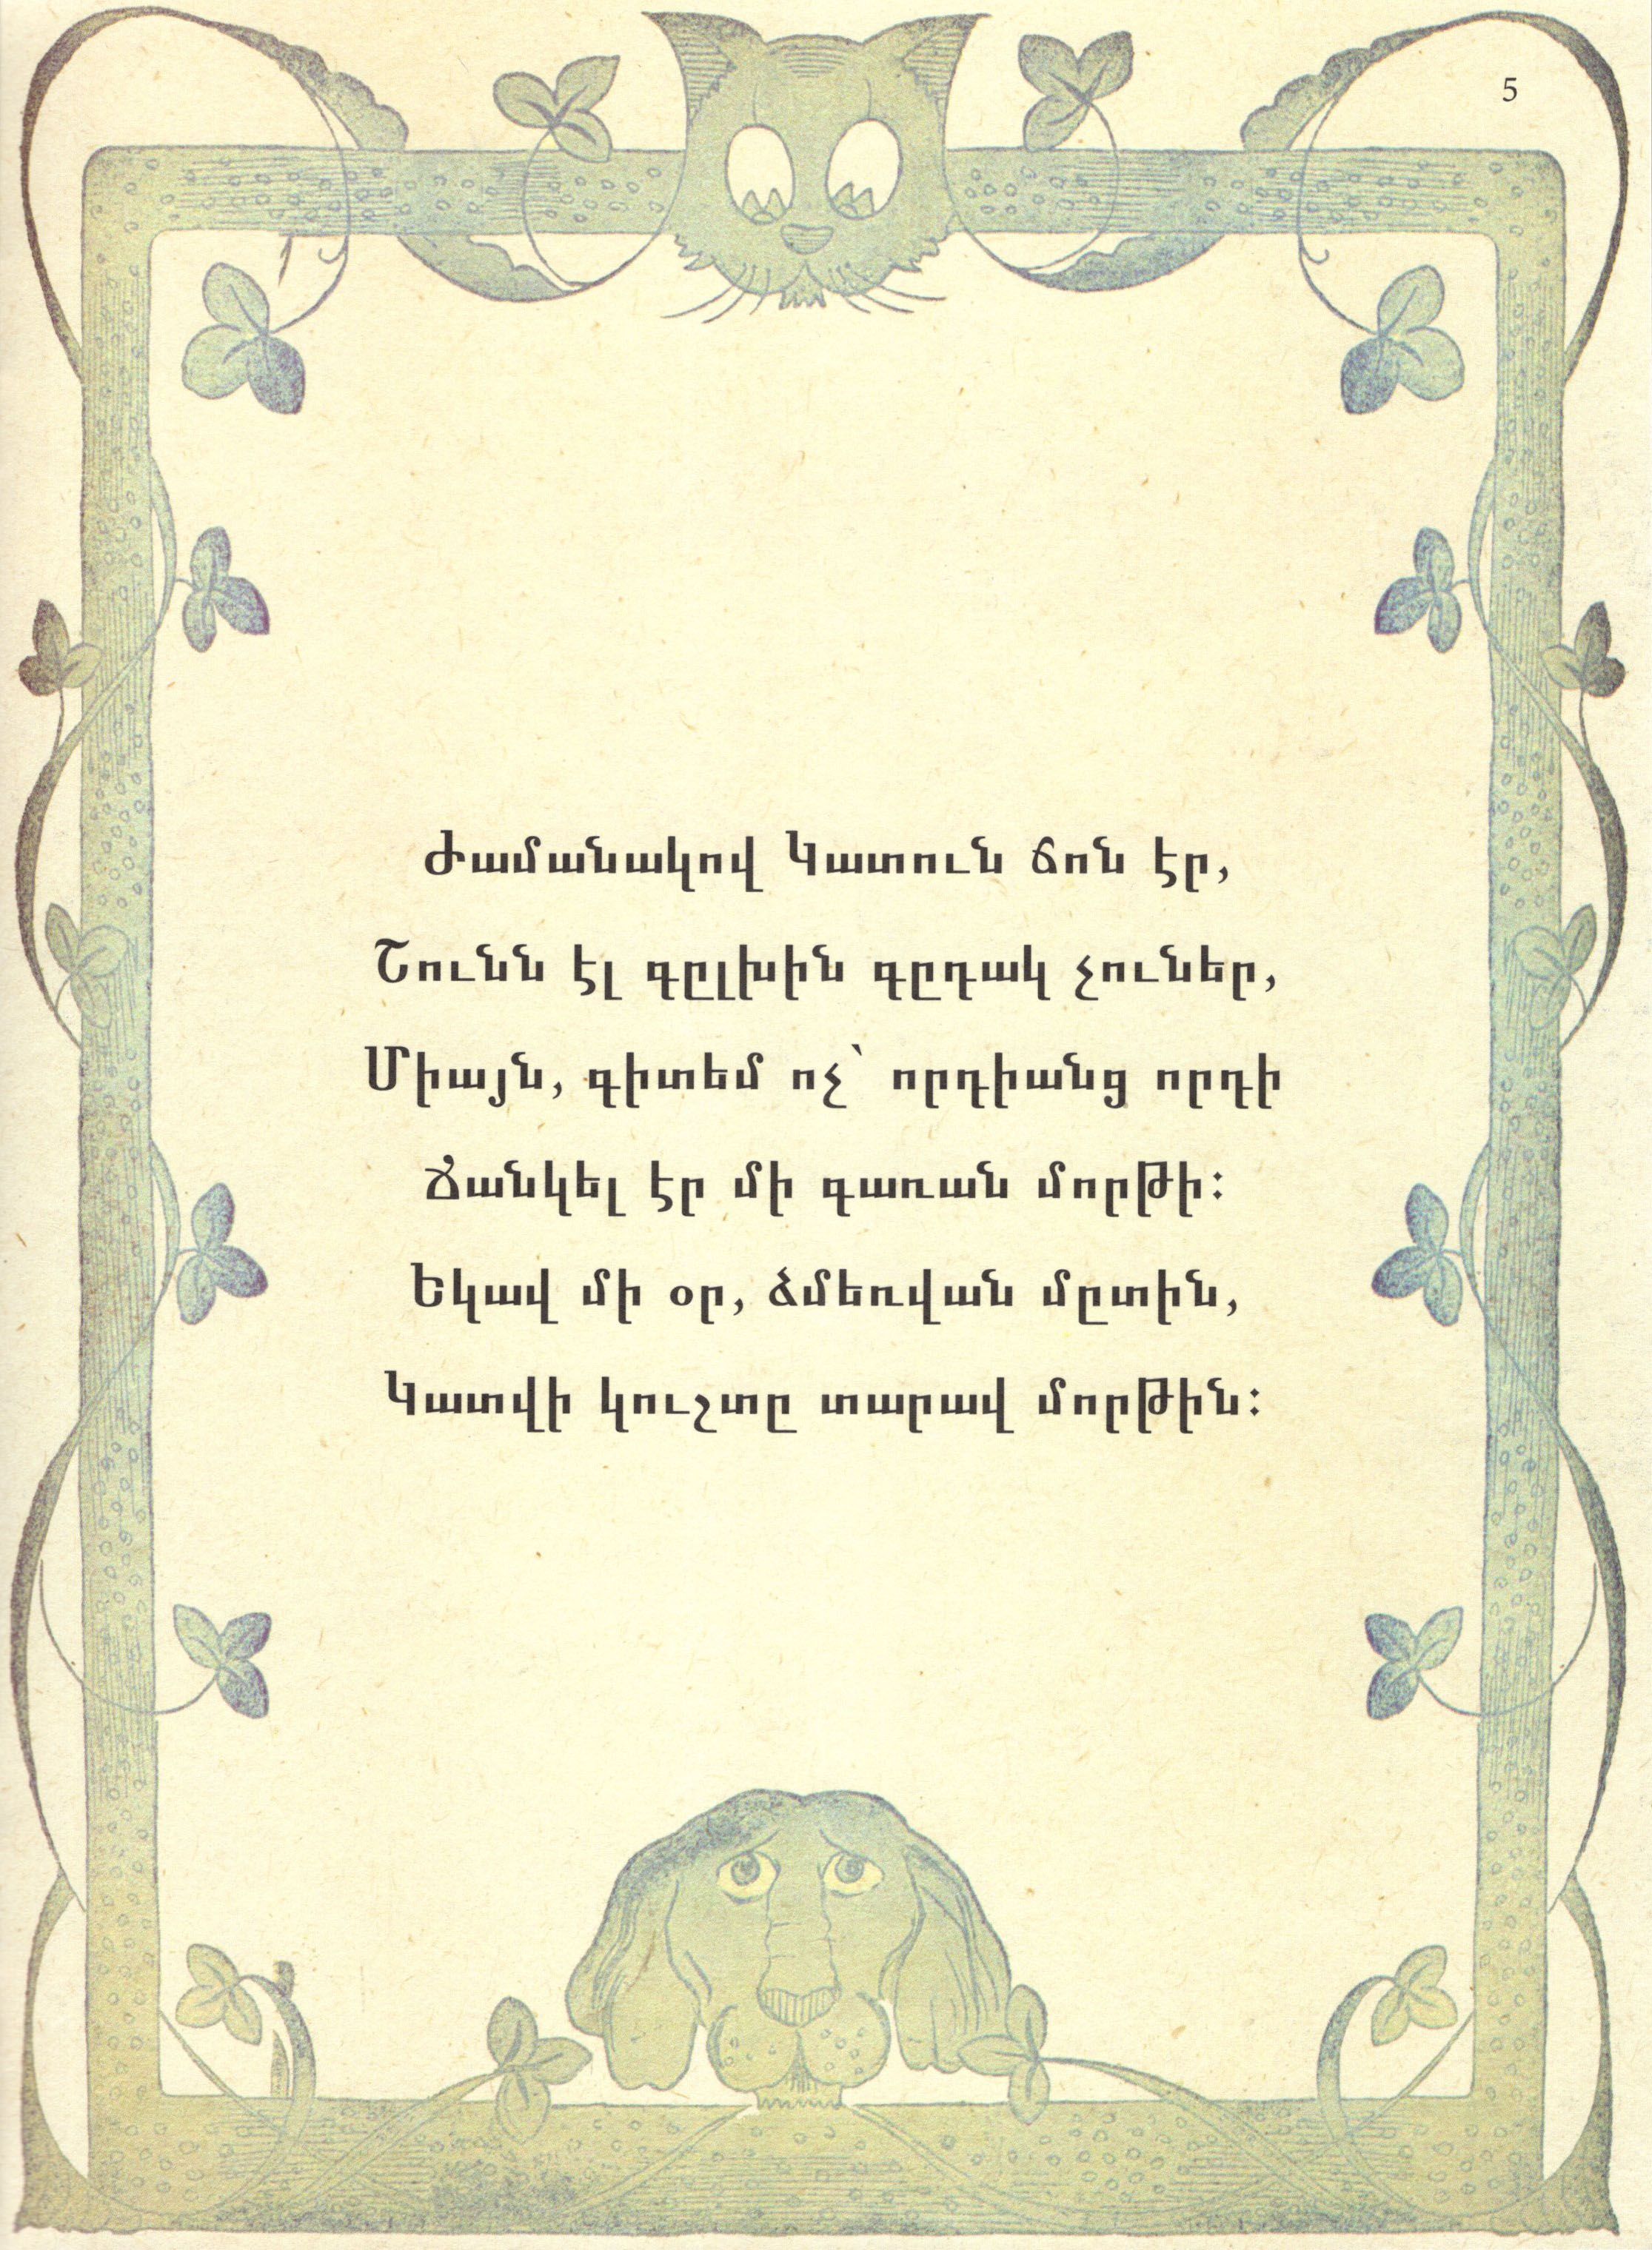 5
Ժամանակով Կատուն ճոն էր,
Շունն էլ գըլխին գըդակ չուներ,
Միայն, գիտեմ ոչ՝ որդիանց որդի
Ճանկել էր մի գառան մորթի։
Եկավ մի օր, ձմեռվան մըտին,
Կատվի կուշտը տարավ մորթին։